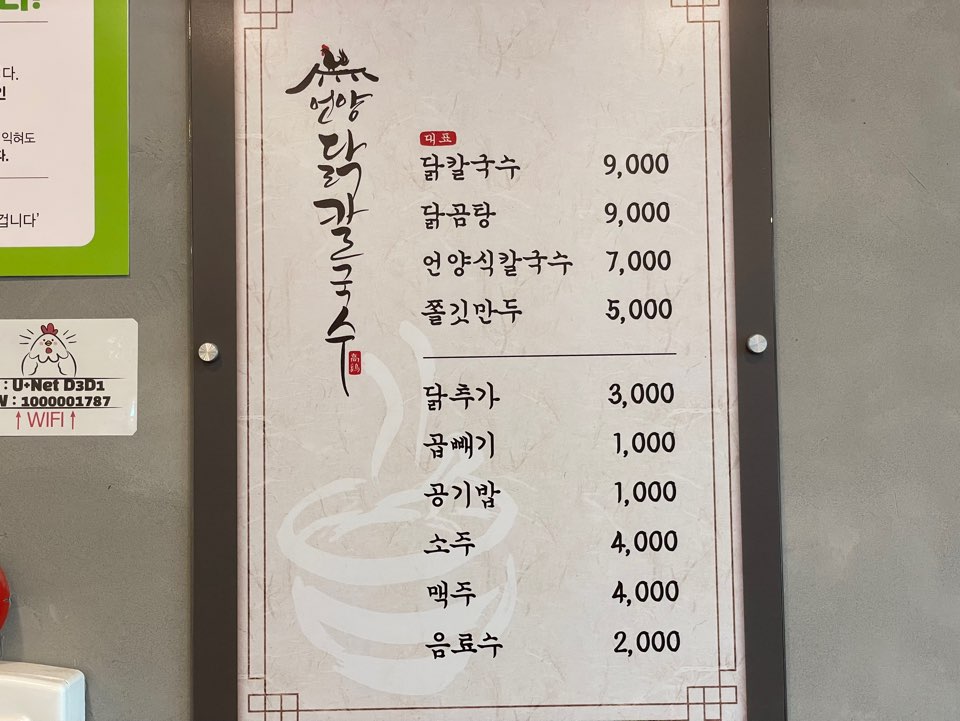 다.
인
익혀도
다.
겁니다'
: U+Net D3D1
W : 1000001787
↑WIFI↑
언양
닭칼국수
대표
닭칼국수 9,000
닭곰탕 9,000
언양식칼국수 7,000
쫄깃만두 5,000
닭추가 3,000
곱빼기 1,000
공기밥 1,000
소주 4,000
맥주 4,000
음료수 2,000